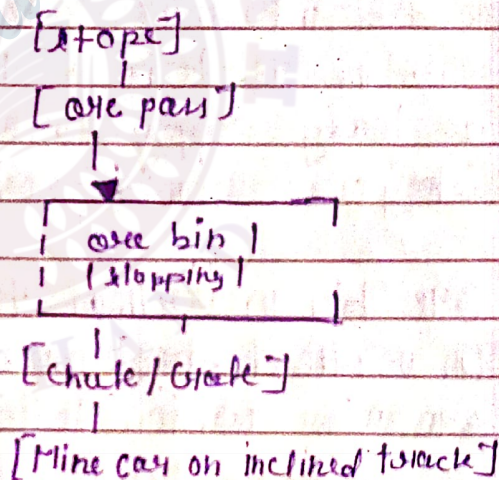 [stope]
[ore pass]
ore bin
(slopping)
[chute/Grate]
[Mine car on inclined track]